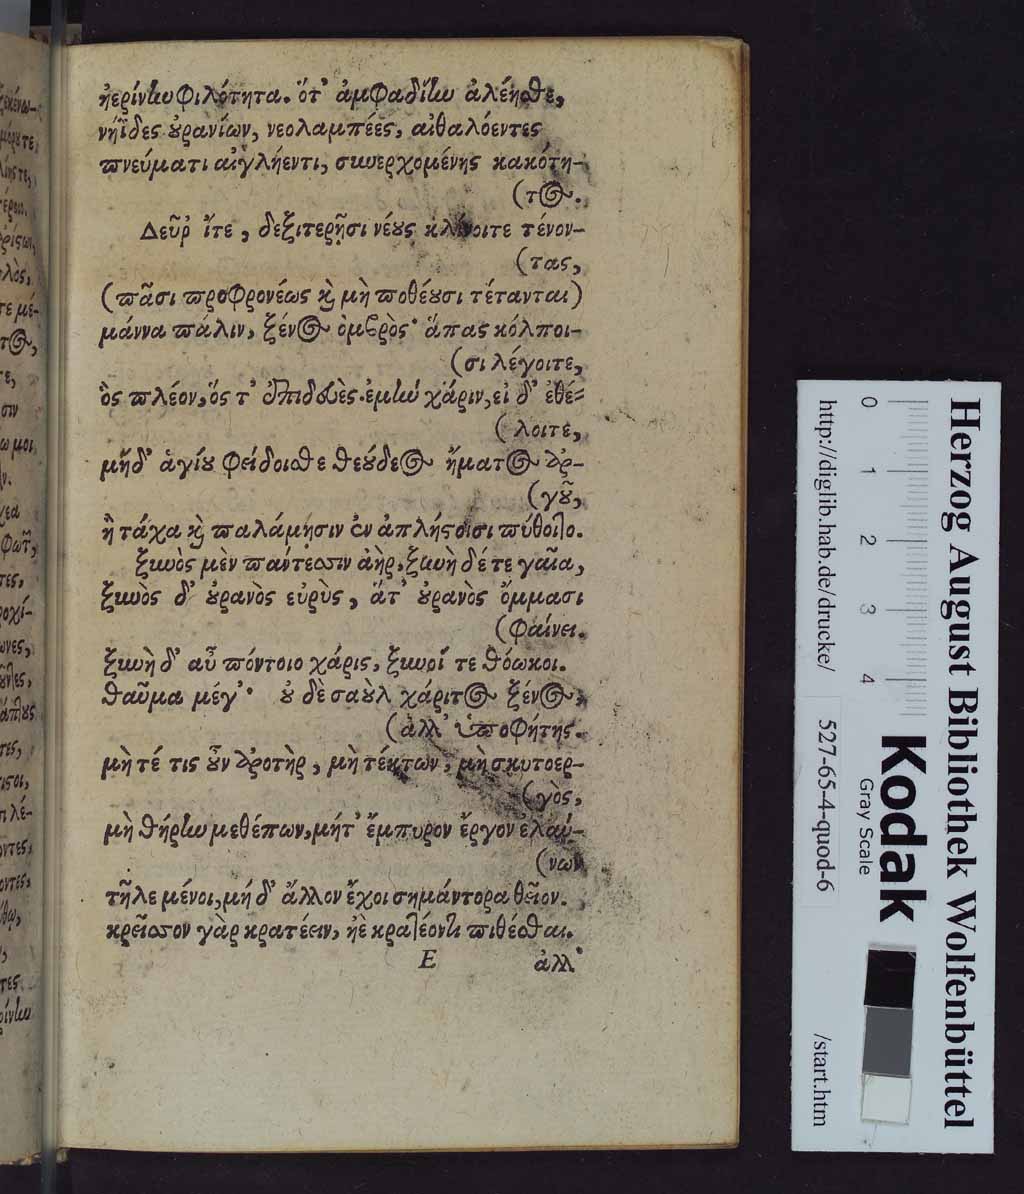 ἠερίνην φιλότητα. ὅτ' ἀμφαδίην ἀλέησθε,
νηΐδες οὐρανίων, νεολαμπέες, αἰθαλόεντες
πνεύματι αἰγλήεντι, συνερχομένης κακότη-
(τος.
Δεῦρ' ἴτε, δεξιτερῇσι νέους κλίνοιτε τένον-
(τας,
(πᾶσι προφρονέως καὶ μὴ ποθέουσι τέτανται)
μάννα πάλιν, ξένος ὀμβρὸς· ἅπας κόλποι-
(σι λέγοιτε,
ὃς πλέον, ὅς τ' ἐπιδευὲς. ἐμὴν χάριν, εἰ δ' ἐθέ-
(λοιτε,
μηδ' ἁγίου φείδοισθε θεούδεος ἤματος ἀρ-
(γοῦ,
ἢ τάχα καὶ παλάμησιν ἐν ἀπλήστοισι πύθοιτο.
ξυνὸς μὲν πάντεσσιν ἀὴρ, ξυνὴ δέ τε γαῖα,
ξυνὸς δ' οὐρανὸς εὐρὺς, ἅτ' οὐρανὸς ὄμμασι
(φαίνει.
ξυνὴ δ' αὖ πόντοιο χάρις, ξυνοί τε θόωκοι.
θαῦμα μέγ'· οὐ δὲ σαοὺλ χάριτος ξένος,
(ἀλλ' ὑποφήτης.
μὴ τέ τις οὖν ἀροτὴρ, μὴ τέκτων, μὴ σκυτοερ-
(γὸς,
μὴ θήρην μεθέπων, μήτ' ἔμπυρον ἔργον ἐλαύ-
(νων
τῆλε μένοι, μή δ' ἄλλον ἔχοι σημάντορα θεῖον.
κρεῖσσον γὰρ κρατέειν, ἠὲ κρατέοντι πιθέσθαι.
E ἀλλ'
Herzog August Bibliothek Wolfenbüttel
Kodak
Gray Scale
0 1 2 3 4
http://diglib.hab.de/drucke/ 527-65-4-quod-6 /start.htm